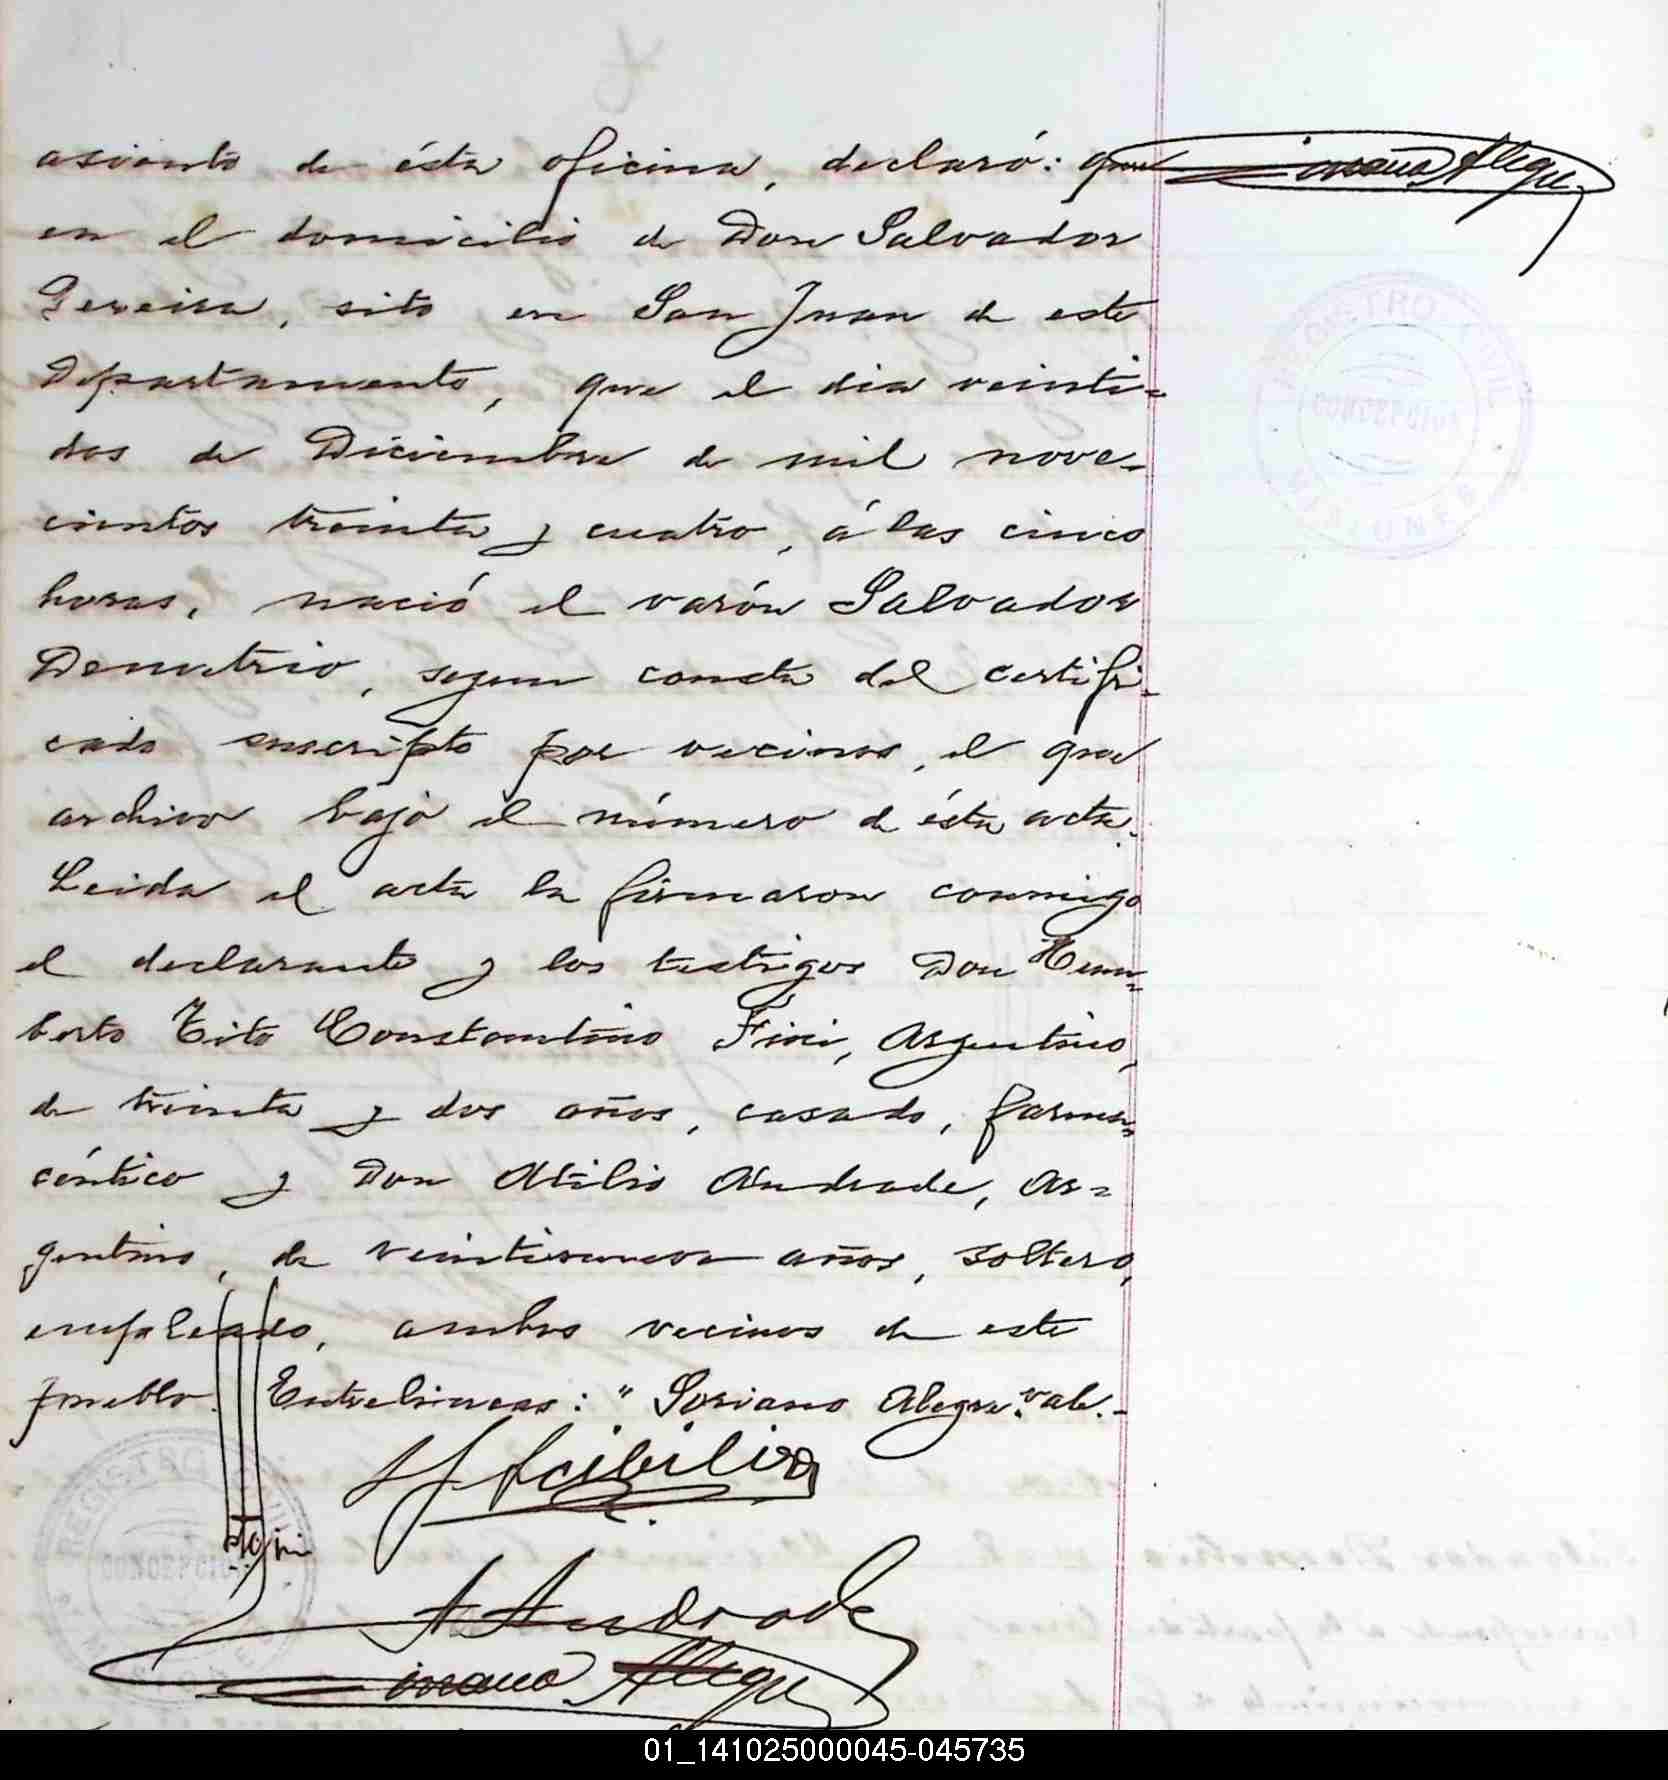 asiento de ésta oficina, declaró: que
Soriano Alegre
en el domicilio de Don Salvador
Pereira, sito en San Juan de este
Departamento, que el dia veinti-
dos de Diciembre de mil nove-
cientos treinta y cuatro, á las cinco
horas, nació el varón Salvador
Demetrio, segun consta del certifi-
cado suscripto por vecinos, el que
archivo bajo el número de ésta acta.
Leida el acta la firmaron conmigo
el declarante y los testigos Don Hum-
berto Tito Constantino Fini, Argentino,
de treinta y dos años, casado, farma-
céutico y Don Atilio Andrade, Ar-
gentino, de veintinueve años, soltero,
empleado, ambos vecinos de este
pueblo. Entrelineas: "Soriano Alegre" vale.-
A Andrade
Soriano Alegre
REGISTRO CIVIL
CONCEPCION
MISIONES
REGISTRO CIVIL
CONCEPCION
MISIONES
01_141025000045-045735